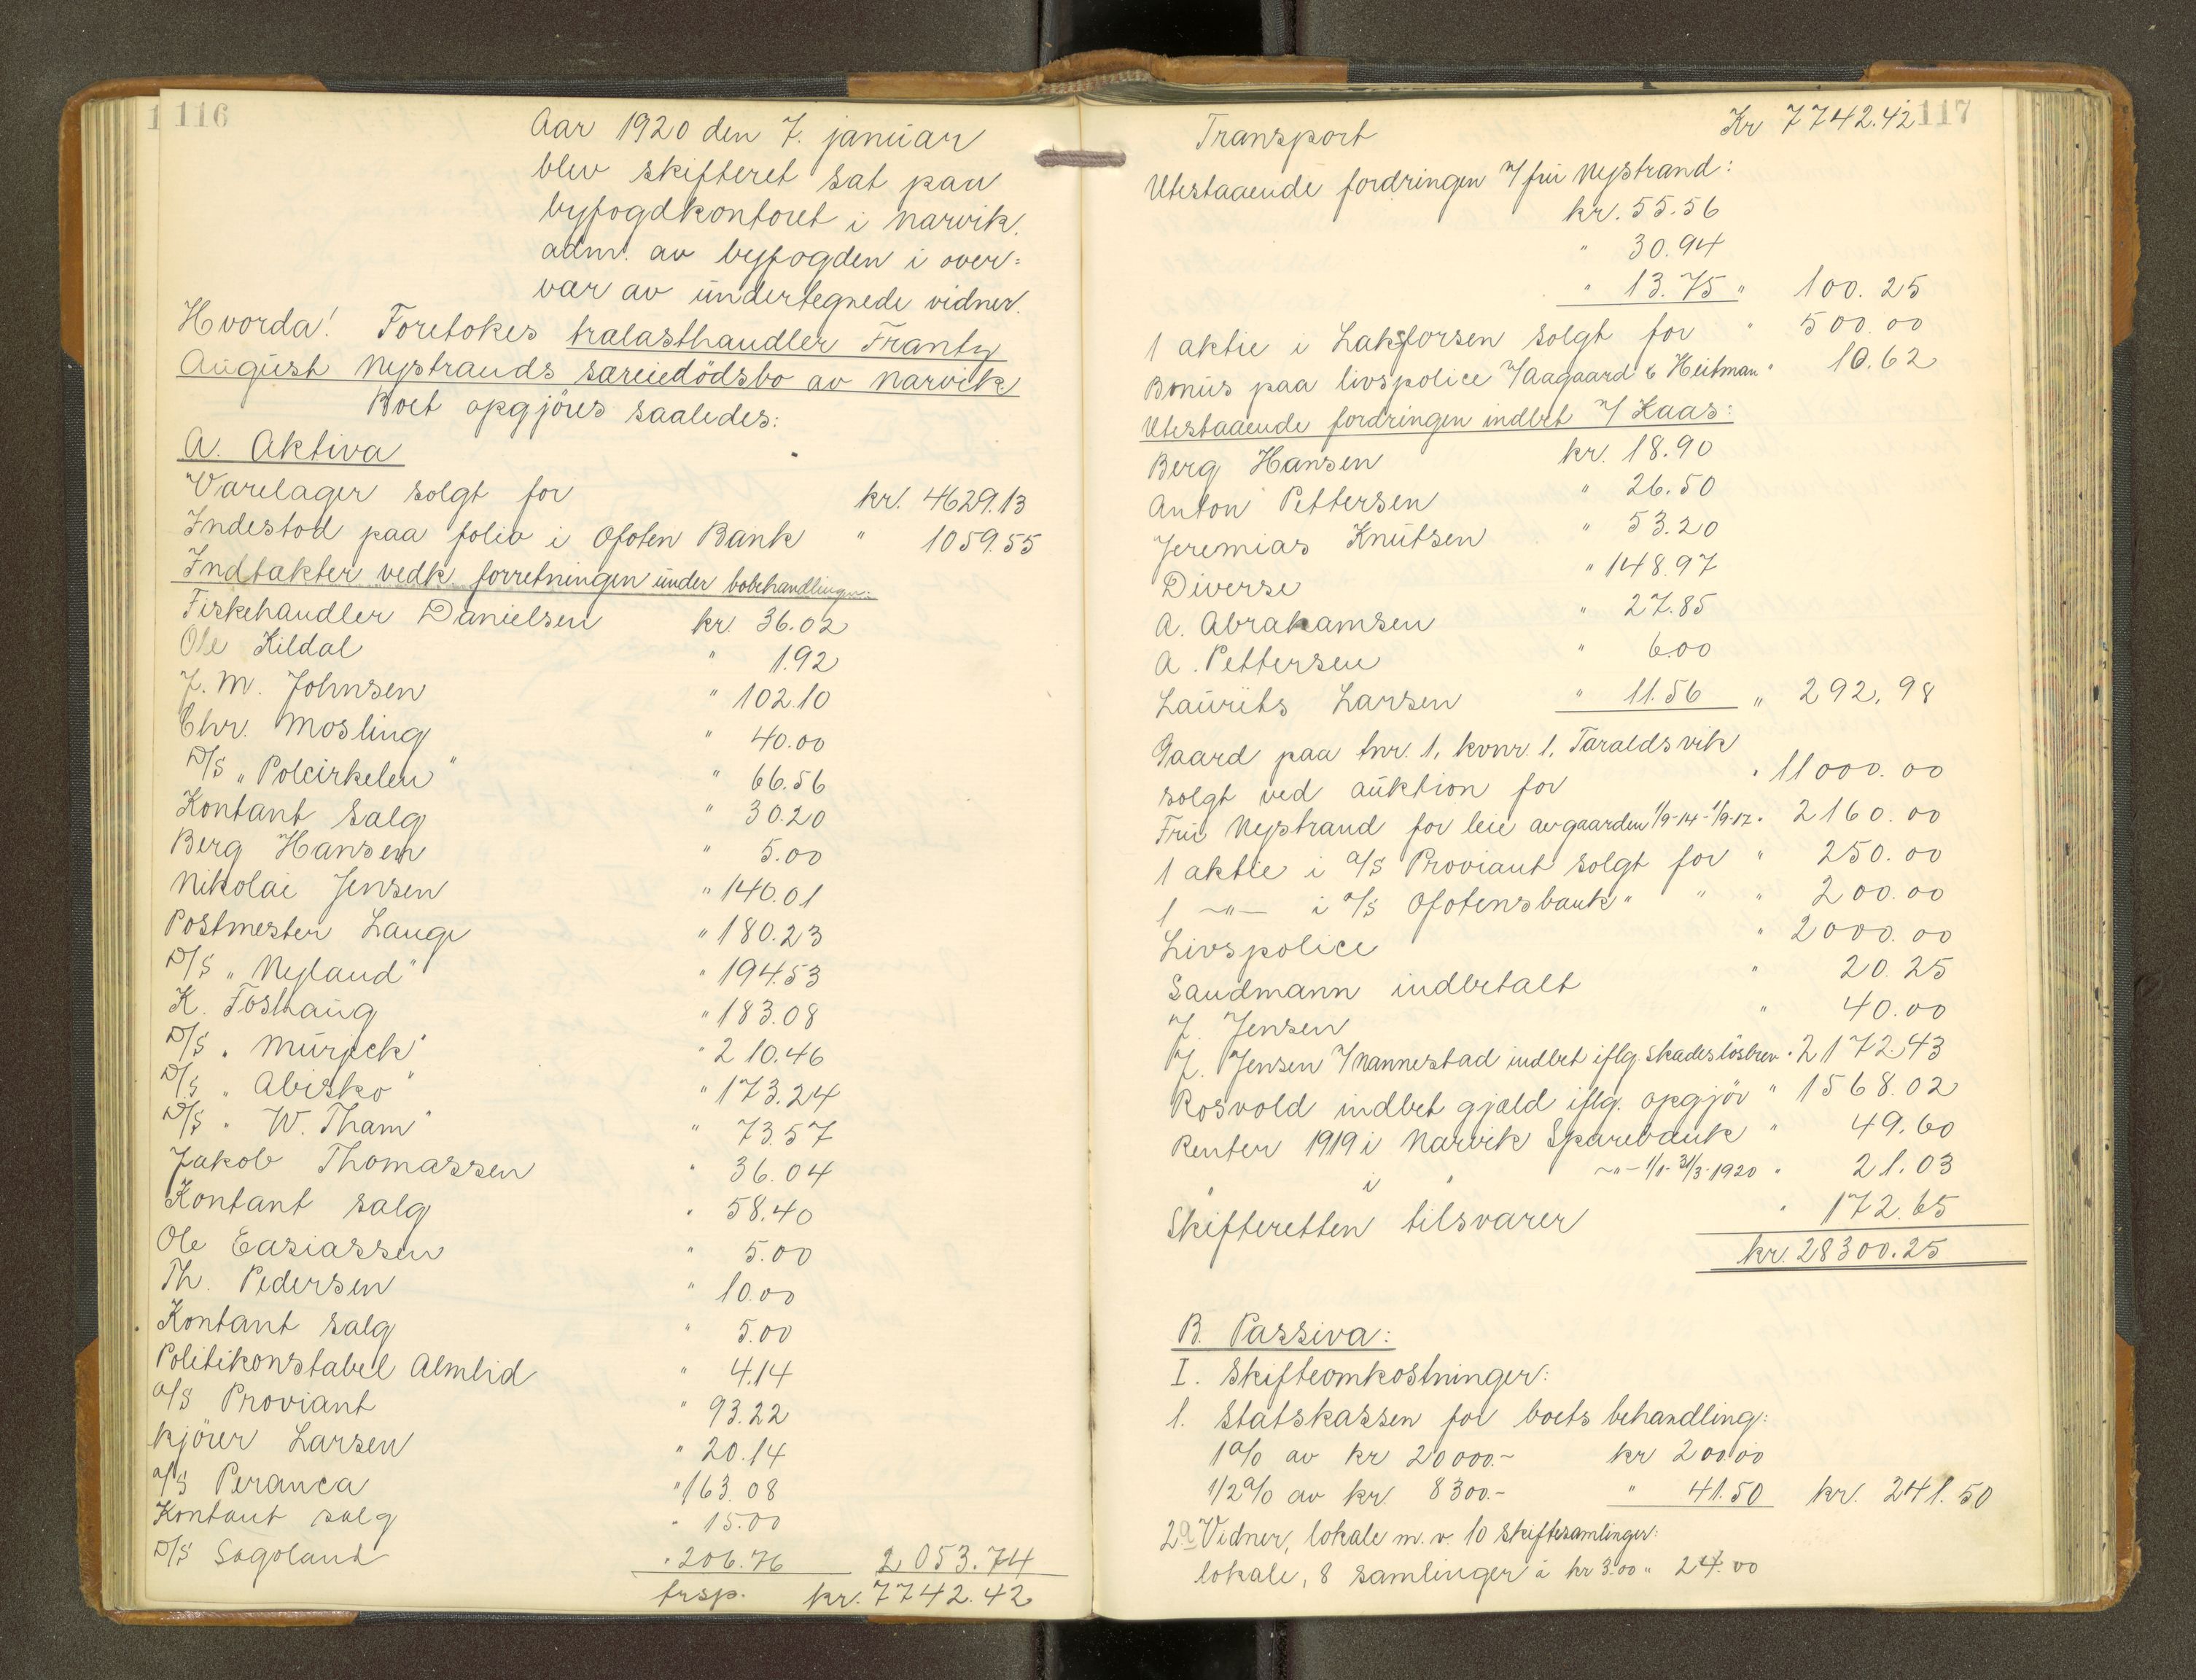 116
Aar 1920 den 7. januar
blev skifteret sat paa
byfogdkontoret i Narvik.
adm. av byfogden i over=
vær av undertegnede vidner.
Hvorda! Foretokes trælasthandler Frantz
August Nystrands særeiedödsbo av Narvik
Boet opgjöres saaledes:
A. Aktiva
Varelager solgt for kr. 4629.13
Indestod paa folio i Ofoten Bank " 1059.55
Indtækter vedk. forretningen under bobehandlingen:
Fiskehandler Danielsen kr. 36.02
Ole Kildal " 1.92
J. M. Johnsen " 102.10
Chr. Mosling " 40.00
D/S "Polcirkelen" " 66.56
Kontant salg " 30.20
Berg Hansen " 5.00
Nikolai Jensen " 140.01
Postmester Lange " 180.23
D/S "Nyland" " 194.53
K. Foshaug " 183.08
D/S "Murjek" " 210.46
D/S "Abisko" " 173.24
D/S "W. Tham" " 73.57
Jakob Thomassen " 36.04
Kontant salg " 58.40
Ole Easiassen " 5.00
Th. Pedersen " 10.00
Kontant salg " 5.00
Politikonstabel Almlid " 4.14
A/S Proviant " 93.22
Kjörer Larsen " 20.14
A/S Peranca " 163.08
Kontant salg " 15.00
D/S Sagoland " 206.76 2053.74
trsp. kr. 7742.42
117
Transport Kr 7742.42
Utestaaende fordringer v/ fru Nystrand:
kr. 55.56
" 30.94
" 13.75 " 100.25
1 aktie i Laksforsen solgt for " 500.00
Bonus paa livspolice v/ Aagaard & Heitman " 10.62
Utestaaende fordringer indbet v/ Kaas:
Berg Hansen kr. 18.90
Anton Pettersen " 26.50
Jeremias Knutsen " 53.20
Diverse " 148.97
A. Abrahamsen " 27.85
A. Pettersen " 6.00
Laurits Larsen " 11.56 " 292.98
Gaard paa tnr. 1, kvnr. 1, Taraldsvik
solgt ved auktion for " 11000.00
Fru Nystrand for leie av gaarden 1/9-14 - 1/9-17 " 2160.00
1 aktie i A/S Proviant solgt for " 250.00
1 -"- i A/S Ofotensbank " " " 200.00
Livspolice " 2000.00
Sandmann indbetalt " 20.25
J. Jensen " 40.00
J. Jensen v/ Mannestad indbet iflg. skadeslösbrev " 2172.43
Rosvold indbet gjæld iflg. opgjör " 1568.02
Renter 1919 i Narvik Sparebank " 49.60
" i " -"- 1/1-31/3-1920 " 21.03
Skifteretten tilsvarer " 172.65
kr. 28300.25
B. Passiva:
I. Skifteomkostninger:
1. Statskassen for boets behandling:
1% av kr 20000.- kr 200.00
1/2% av kr. 8300.- " 41.50 kr. 241.50
2a Vidner, lokale m. v. 10 skiftesamlinger:
lokale, 8 samlinger à kr 3.00 " 24.00